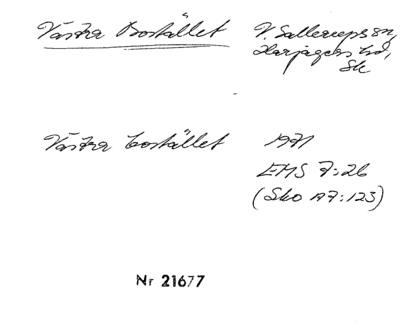 Västra Bostället V. Sallerups sn,
Harjagers hd,
Sk
Västra bostället 1971
EMS 7:26
(Sko A7:123)
Nr 21677